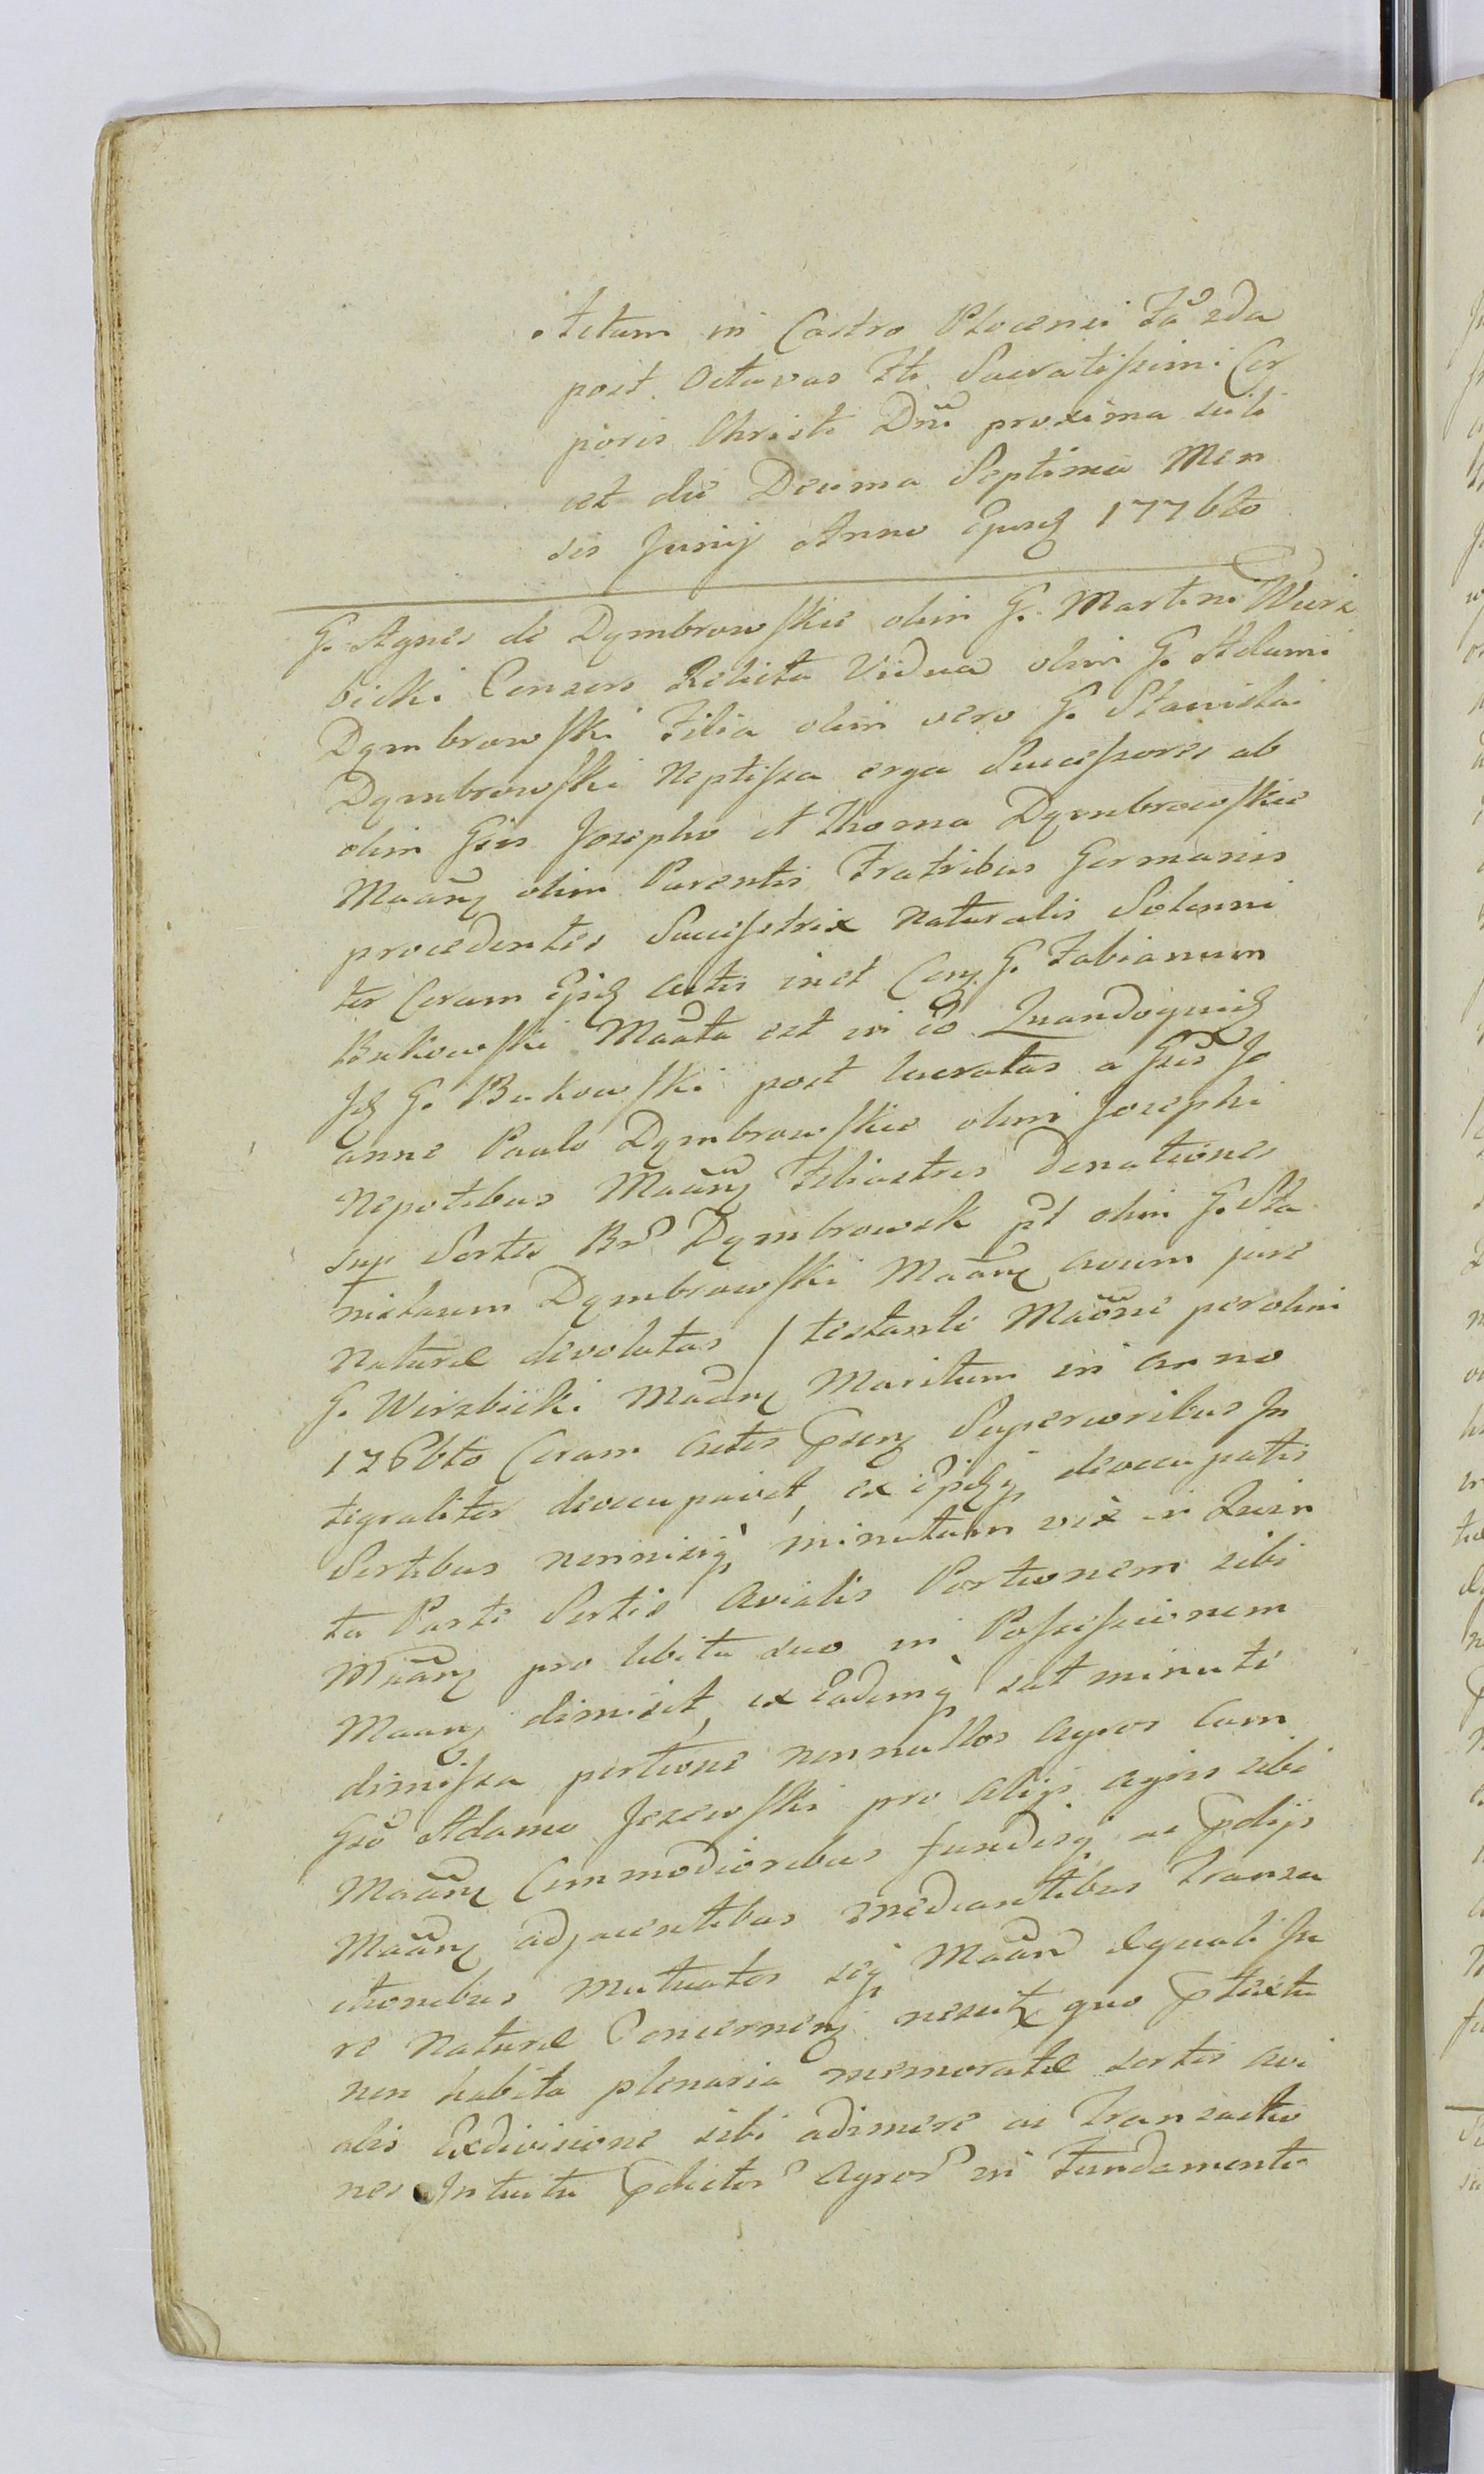 Actum in Castro Plocensi Fa 2da
post Octavas Fti Sacratissimi Cor
poris Christi Dni proxima scili
cet die Decima Septima Men
sis Junij Anno Ejusd 1776to
G. Agnes de Dąmbrowskie olim G. Martini Wierz
bicki Consors Relicta Vidua olim G. Adami
Dąmbrowski Filia olim vero G. Stanislai
Dąmbrowski Neptissa erga Successores ab
olim Gsis Josepho et Thoma Dąmbrowskie
Maanᵗ olim Parentis Fratribus Germanis
procedentes Successtrix Naturalis Solenni
ter Coram actis inct G. Fabianum
Bukowski Maata est in eo Quandoquid
Id G. Bukowski post lucratas a Gsis Jo
anne Paulo Dąmbrowskie olim Josephi
Nepotibus Maanᵗ Filiastris Donationes
sup Sortes Br Dąmbrowsk pt olim G. Sta
nislaum Dąmbrowski Maanᵗ avum jure
Naturæ devolutas / testante Maone per olim
G. Wirzbicki Maanᵗ Maritum in anno
1766to Coram actis Superioribus In
tegraliter deoccupavit, ex deoccupatis
Sortibus nonnisiq minutam vix in Quin
ta Parte Sortis Avialis Portionem sibi
Maanᵗ pro libitu suo in Possessionem
Maanᵗ dimisit, ex Eademq sat minute
dimissa portione nonnullos agros cum
Gso Adamo Jezewski pro alijs agris sibi
Maanᵗ Commodioribus fundisq ac
Maanᵗ adjacentibus mediantibus Transa
ctionibus mutuatos seq Maan æquali Ju
re Naturæ Concernenᵗ quo
non habita plenaria memoratæ sortis avi
alis Exdivisione sibi adimere ac Transactio
nes Intuitu pdictor Agror in Fundamento